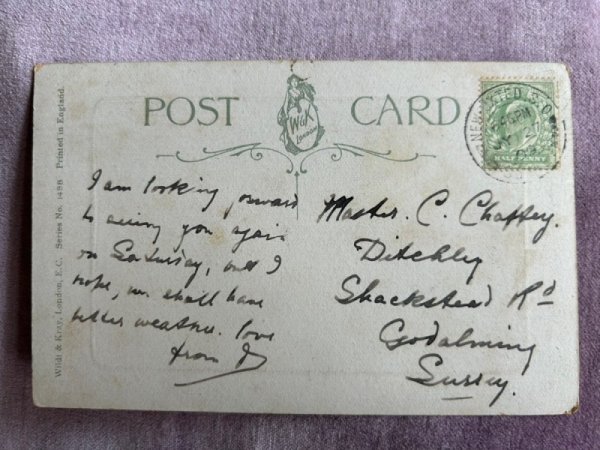 POST CARD
W&K
LONDON
HALF PENNY
I am looking forward
to seeing you again
on Saturday, and I
hope, we shall have
better weather. love
from
Master. C. Chaffey.
Ditchley
Shackstead Rd
Godalming
Surrey.
Wildt & Kray, London, E.C. Series No. 1498 Printed in England.